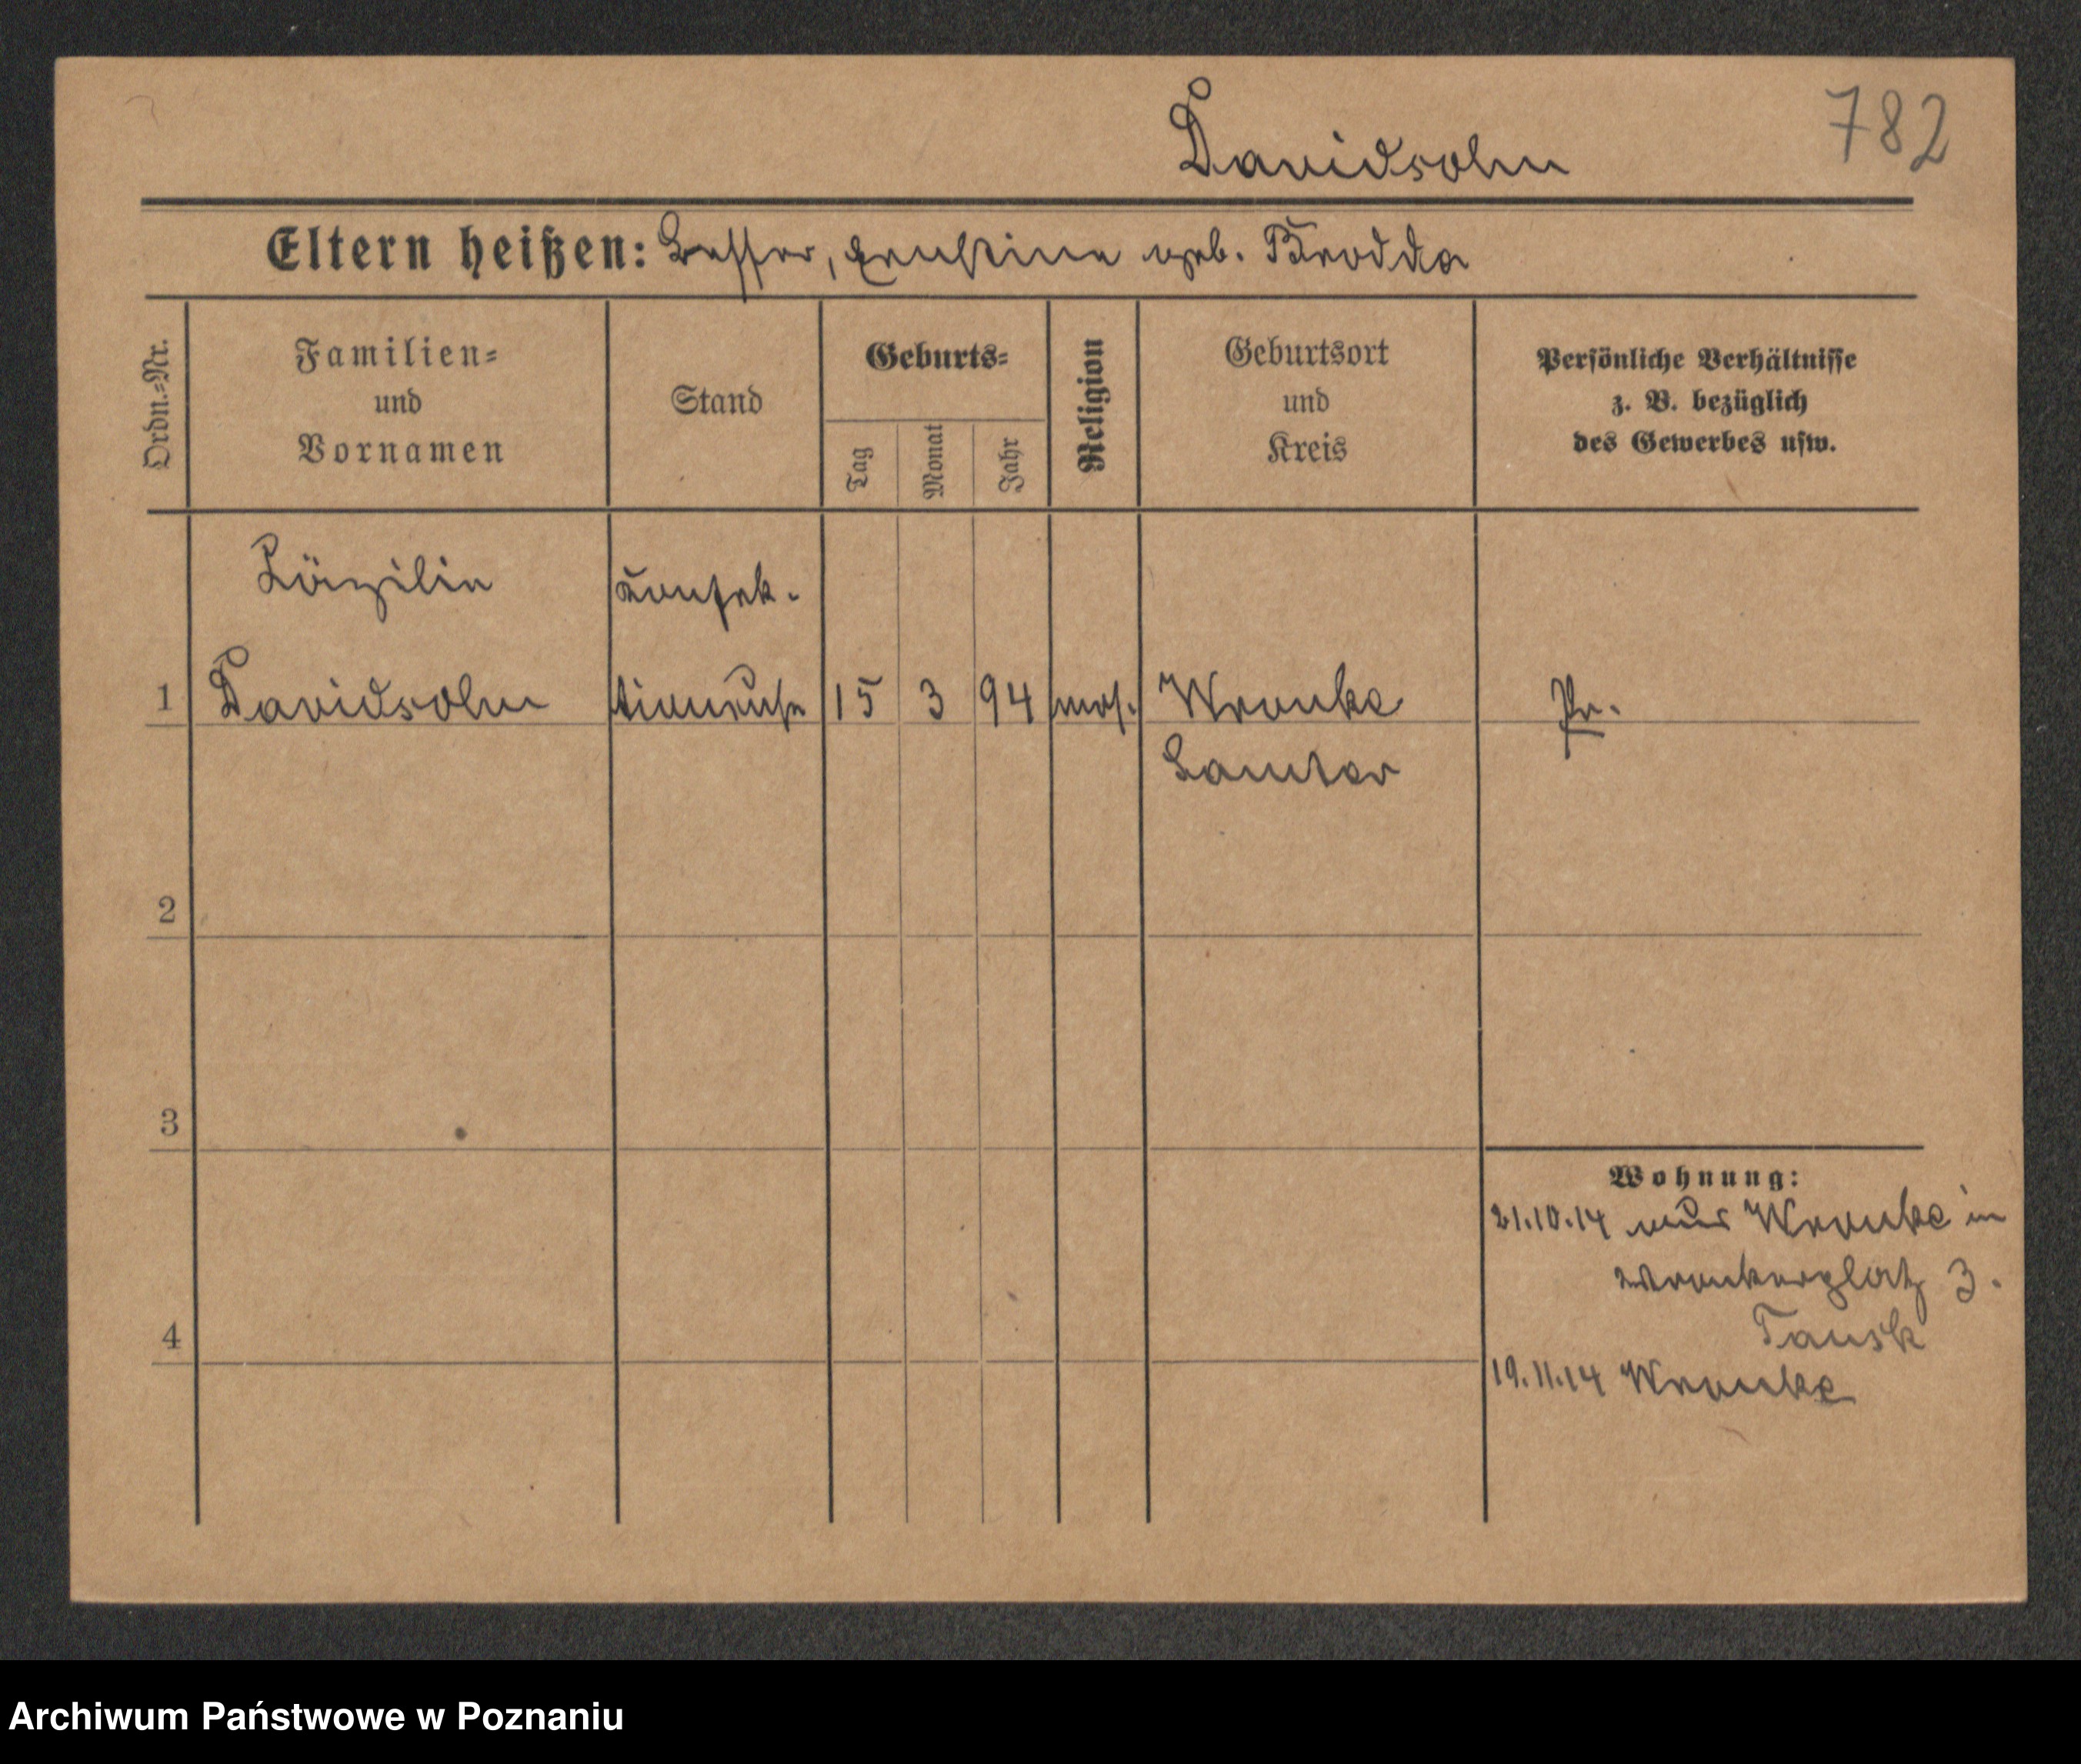 782
Davidsohn
Eltern heißen: Besser, Ernstine geb. Brodda
Ordn.-Nr.
Familien-
und
Vornamen
Stand
Geburts-
Tag
Monat
Jahr
Religion
Geburtsort
und
Kreis
Persönliche Verhältnisse
z. B. bezüglich
des Gewerbes usw.
Zäzilie
Konfek-
1 Davidsohn tioneuse 15 3 94 mos. Wronke Pr.
Samter
2
3
4
Wohnung:
21.10.14 aus Wronke in
Wronkerplatz 3.
Tausk
19.11.14 Wronke
Archiwum Państwowe w Poznaniu